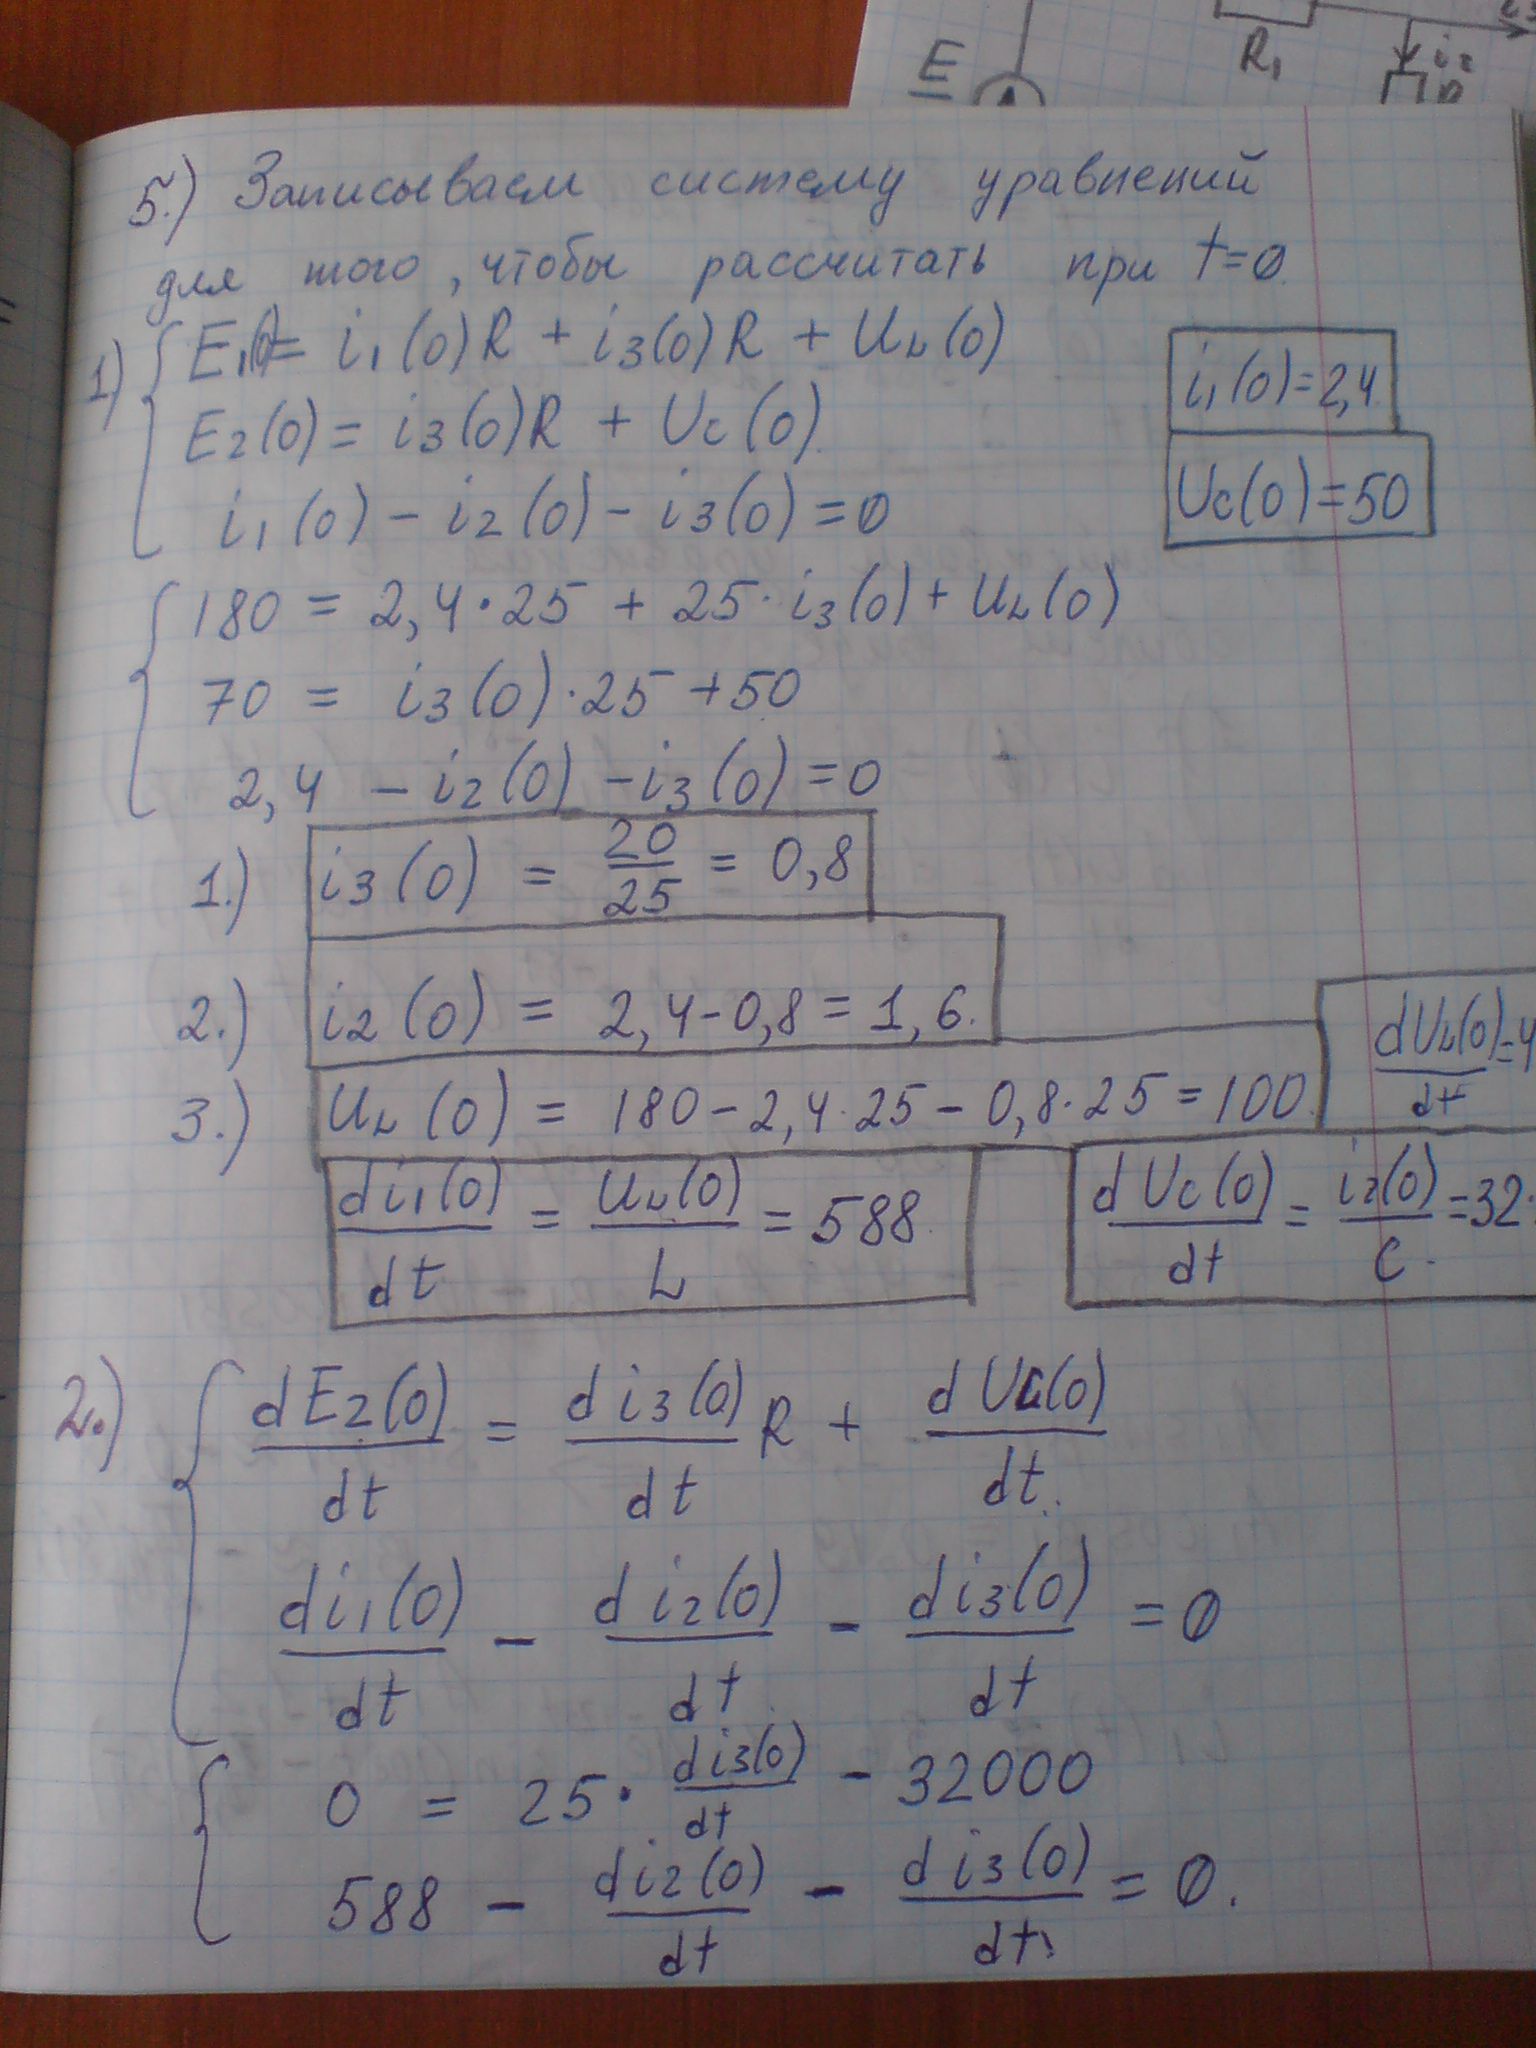 E
R₁
i₂
5.) Записываем систему уравнений
для того, чтобы рассчитать при t=0
1) E₁(0) = i₁(0)R + i₃(0)R + U_L(0)
i₁(0)=2,4
E₂(0) = i₃(0)R + Uc(0)
Uc(0)=50
i₁(0) - i₂(0) - i₃(0) = 0
180 = 2,4·25 + 25·i₃(0) + U_L(0)
70 = i₃(0)·25 + 50
2,4 - i₂(0) - i₃(0) = 0
1.) i₃(0) = 20/25 = 0,8
2.) i₂(0) = 2,4-0,8 = 1,6.
dU_L(0)/dt = 4
3.) U_L(0) = 180 - 2,4·25 - 0,8·25 = 100
di₁(0)/dt = U_L(0)/L = 588
dUc(0)/dt = i₂(0)/C = 32
2.) dE₂(0)/dt = di₃(0)/dt R + dUc(0)/dt
di₁(0)/dt - di₂(0)/dt - di₃(0)/dt = 0
0 = 25· di₃(0)/dt - 32000
588 - di₂(0)/dt - di₃(0)/dt = 0.